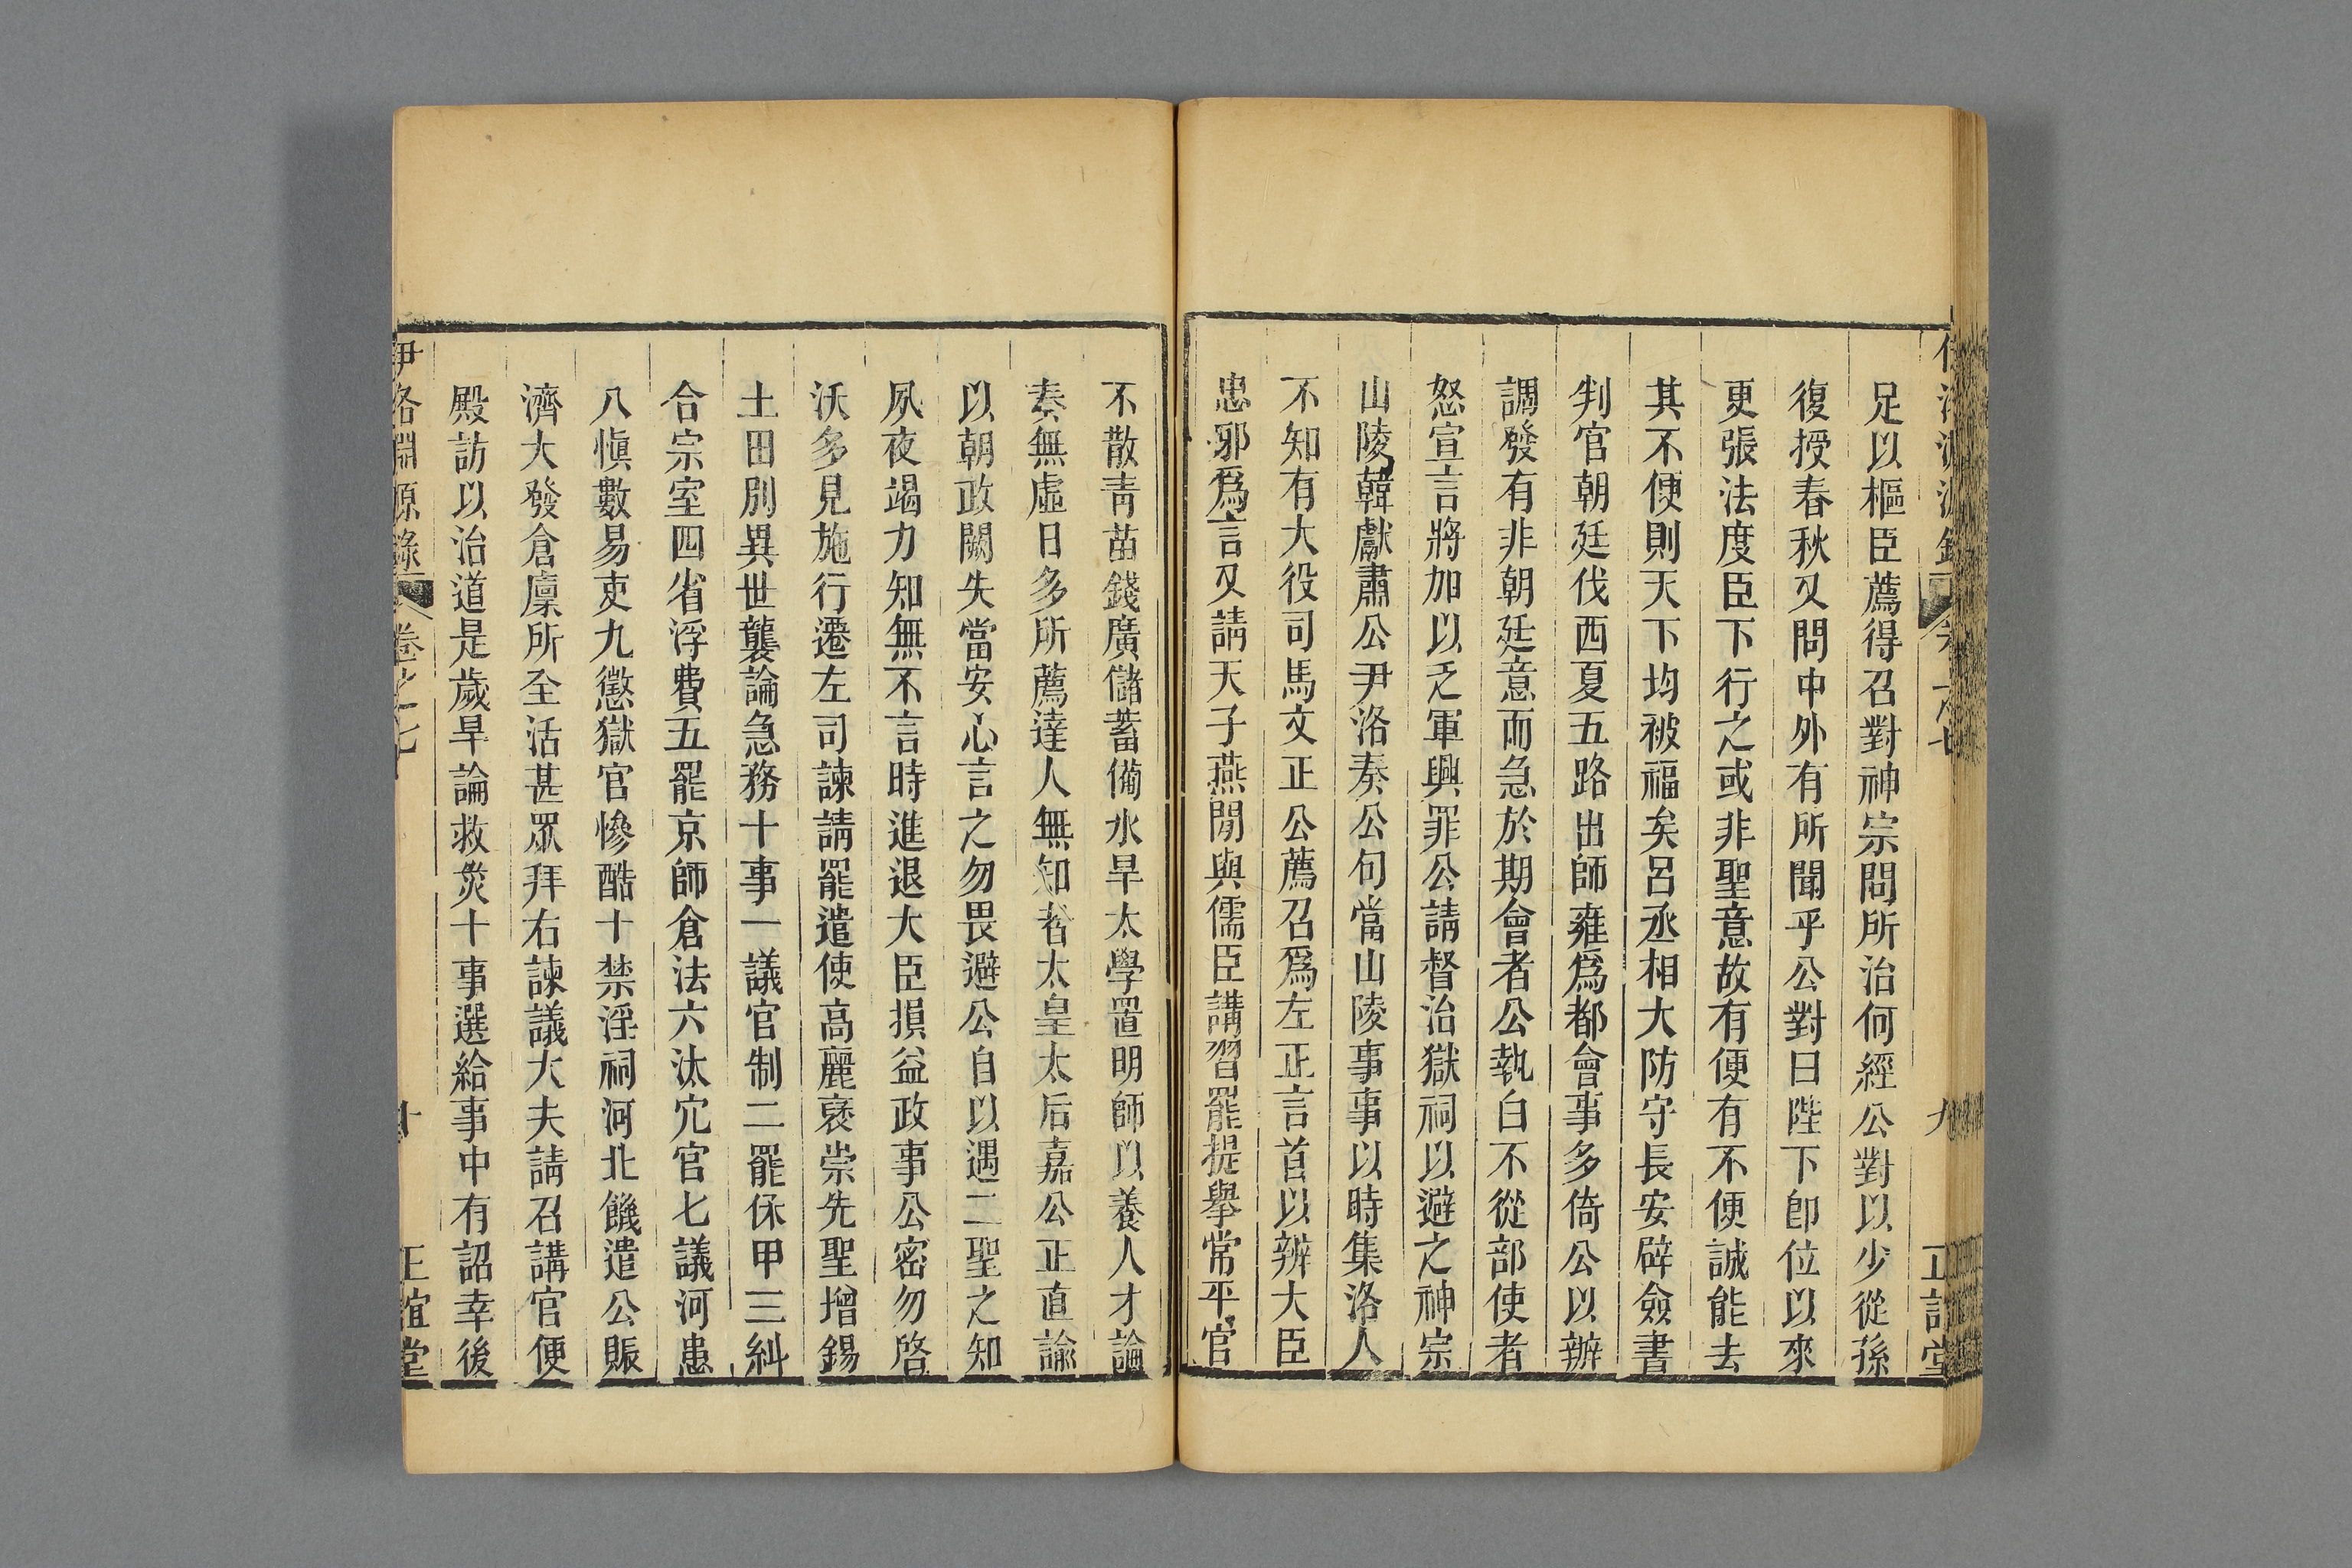 足以樞臣薦得召對神宗問所治何經公對以少從孫
復授春秋又問中外有所聞乎公對曰陛下卽位以來
更張法度臣下行之或非聖意故有便有不便誠能去
其不便則天下均被福矣呂丞相大防守長安辟僉書
判官朝廷伐西夏五路出師雍爲都會事多倚公以辦
調發有非朝廷意而急於期會者公執白不從部使者
怒宣言將加以乏軍興罪公請督治獄祠以避之神宗
山陵韓獻肅公尹洛奏公句當山陵事事以時集洛人
不知有大役司馬文正公薦召爲左正言首以辨大臣
忠邪爲言又請天子燕閒與儒臣講習罷提舉常平官
不散靑苗錢廣儲蓄備水旱太學置明師以養人才論
奏無虛日多所薦達人無知者太皇太后嘉公正直諭
以朝政闕失當安心言之勿畏避公自以遇二聖之知
夙夜竭力知無不言時進退大臣損益政事公密勿啓
沃多見施行遷左司諫請罷遣使高麗褒崇先聖增錫
土田別異世襲論急務十事一議官制二罷保甲三糾
合宗室四省浮費五罷京師倉法六汰宂官七議河患
八愼數易吏九懲獄官慘酷十禁淫祠河北饑遣公賑
濟大發倉廩所全活甚眾拜右諫議大夫請召講官便
殿訪以治道是歲旱論救災十事選給事中有詔幸後
伊洛淵源錄 卷之七 十 正誼堂